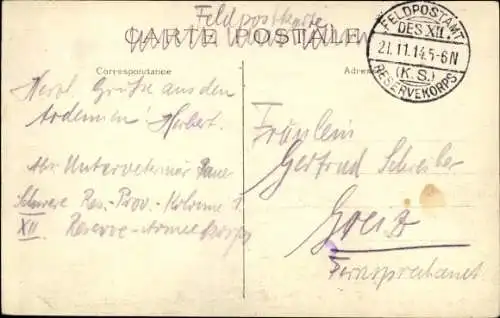 Feldpostkarte
CARTE POSTALE
Correspondance
Adresse
FELDPOSTAMT
DES XII.
21.11.14.5-6N
(K.S.)
RESERVEKORPS
Herzl. Grüße aus den
Ardennen Herbert.
Abs. Unterveterinär
Schwere Res.-Prov.-Kolonne 1
XII. Reserve-Armeekorps
Fräulein
Gertrud Schreiber
Greiz
Fernsprechamt